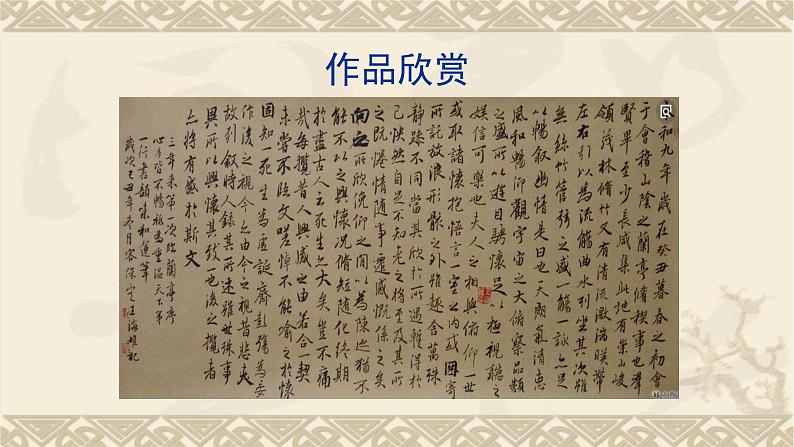 作品欣赏
永和九年歲在癸丑暮春之初會
于會稽山陰之蘭亭脩稧事也羣
賢畢至少長咸集此地有崇山峻
領茂林脩竹又有清流激湍暎帶
左右引以為流觴曲水列坐其次雖
無絲竹管弦之盛一觴一詠亦足
以暢敘幽情是日也天朗氣清惠
風和暢仰觀宇宙之大俯察品類
之盛所以遊目騁懷足以極視聽之
娛信可樂也夫人之相與俯仰一世
或取諸懷抱悟言一室之內或因寄
所託放浪形骸之外雖趣舍萬殊
靜躁不同當其欣於所遇暫得於
己怏然自足不知老之將至及其所
之既惓情隨事遷感慨係之矣
向之所欣俛仰之間以為陳迹猶不
能不以之興懷況脩短隨化終期
於盡古人云死生亦大矣豈不痛
哉每攬昔人興感之由若合一契
未嘗不臨文嗟悼不能喻之於懷
固知一死生為虛誕齊彭殤為妄
作後之視今亦由今之視昔悲夫
故列敘時人錄其所述雖世殊事
異所以興懷其致一也後之攬者
亦將有感於斯文
三年来第一次臨蘭亭序
心手皆不暢 為重温天下第
一行書韻味和運筆
歲次己丑年冬月客保定王海 記